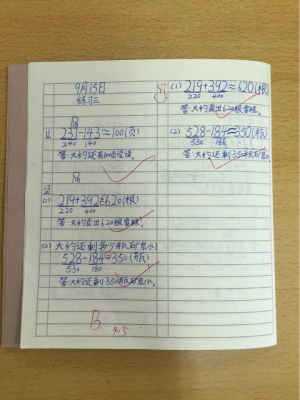 9月15日
练习三
11
231-143≈100(页)
240 140
答:大约还有100页没读。
13
(1)
219+392≈620(根)
220 400
答:大约卖出620根雪糕。
(2) 大约还剩多少瓶矿泉水?
528-184≈350(瓶)
530 180
答:大约还剩350瓶矿泉水。
B
9.15
(1) 219+392≈620(根)
220 400
答:大约卖出620根雪糕。
(2) 528-184≈350(瓶)
530 180
答:大约还剩350瓶矿泉水